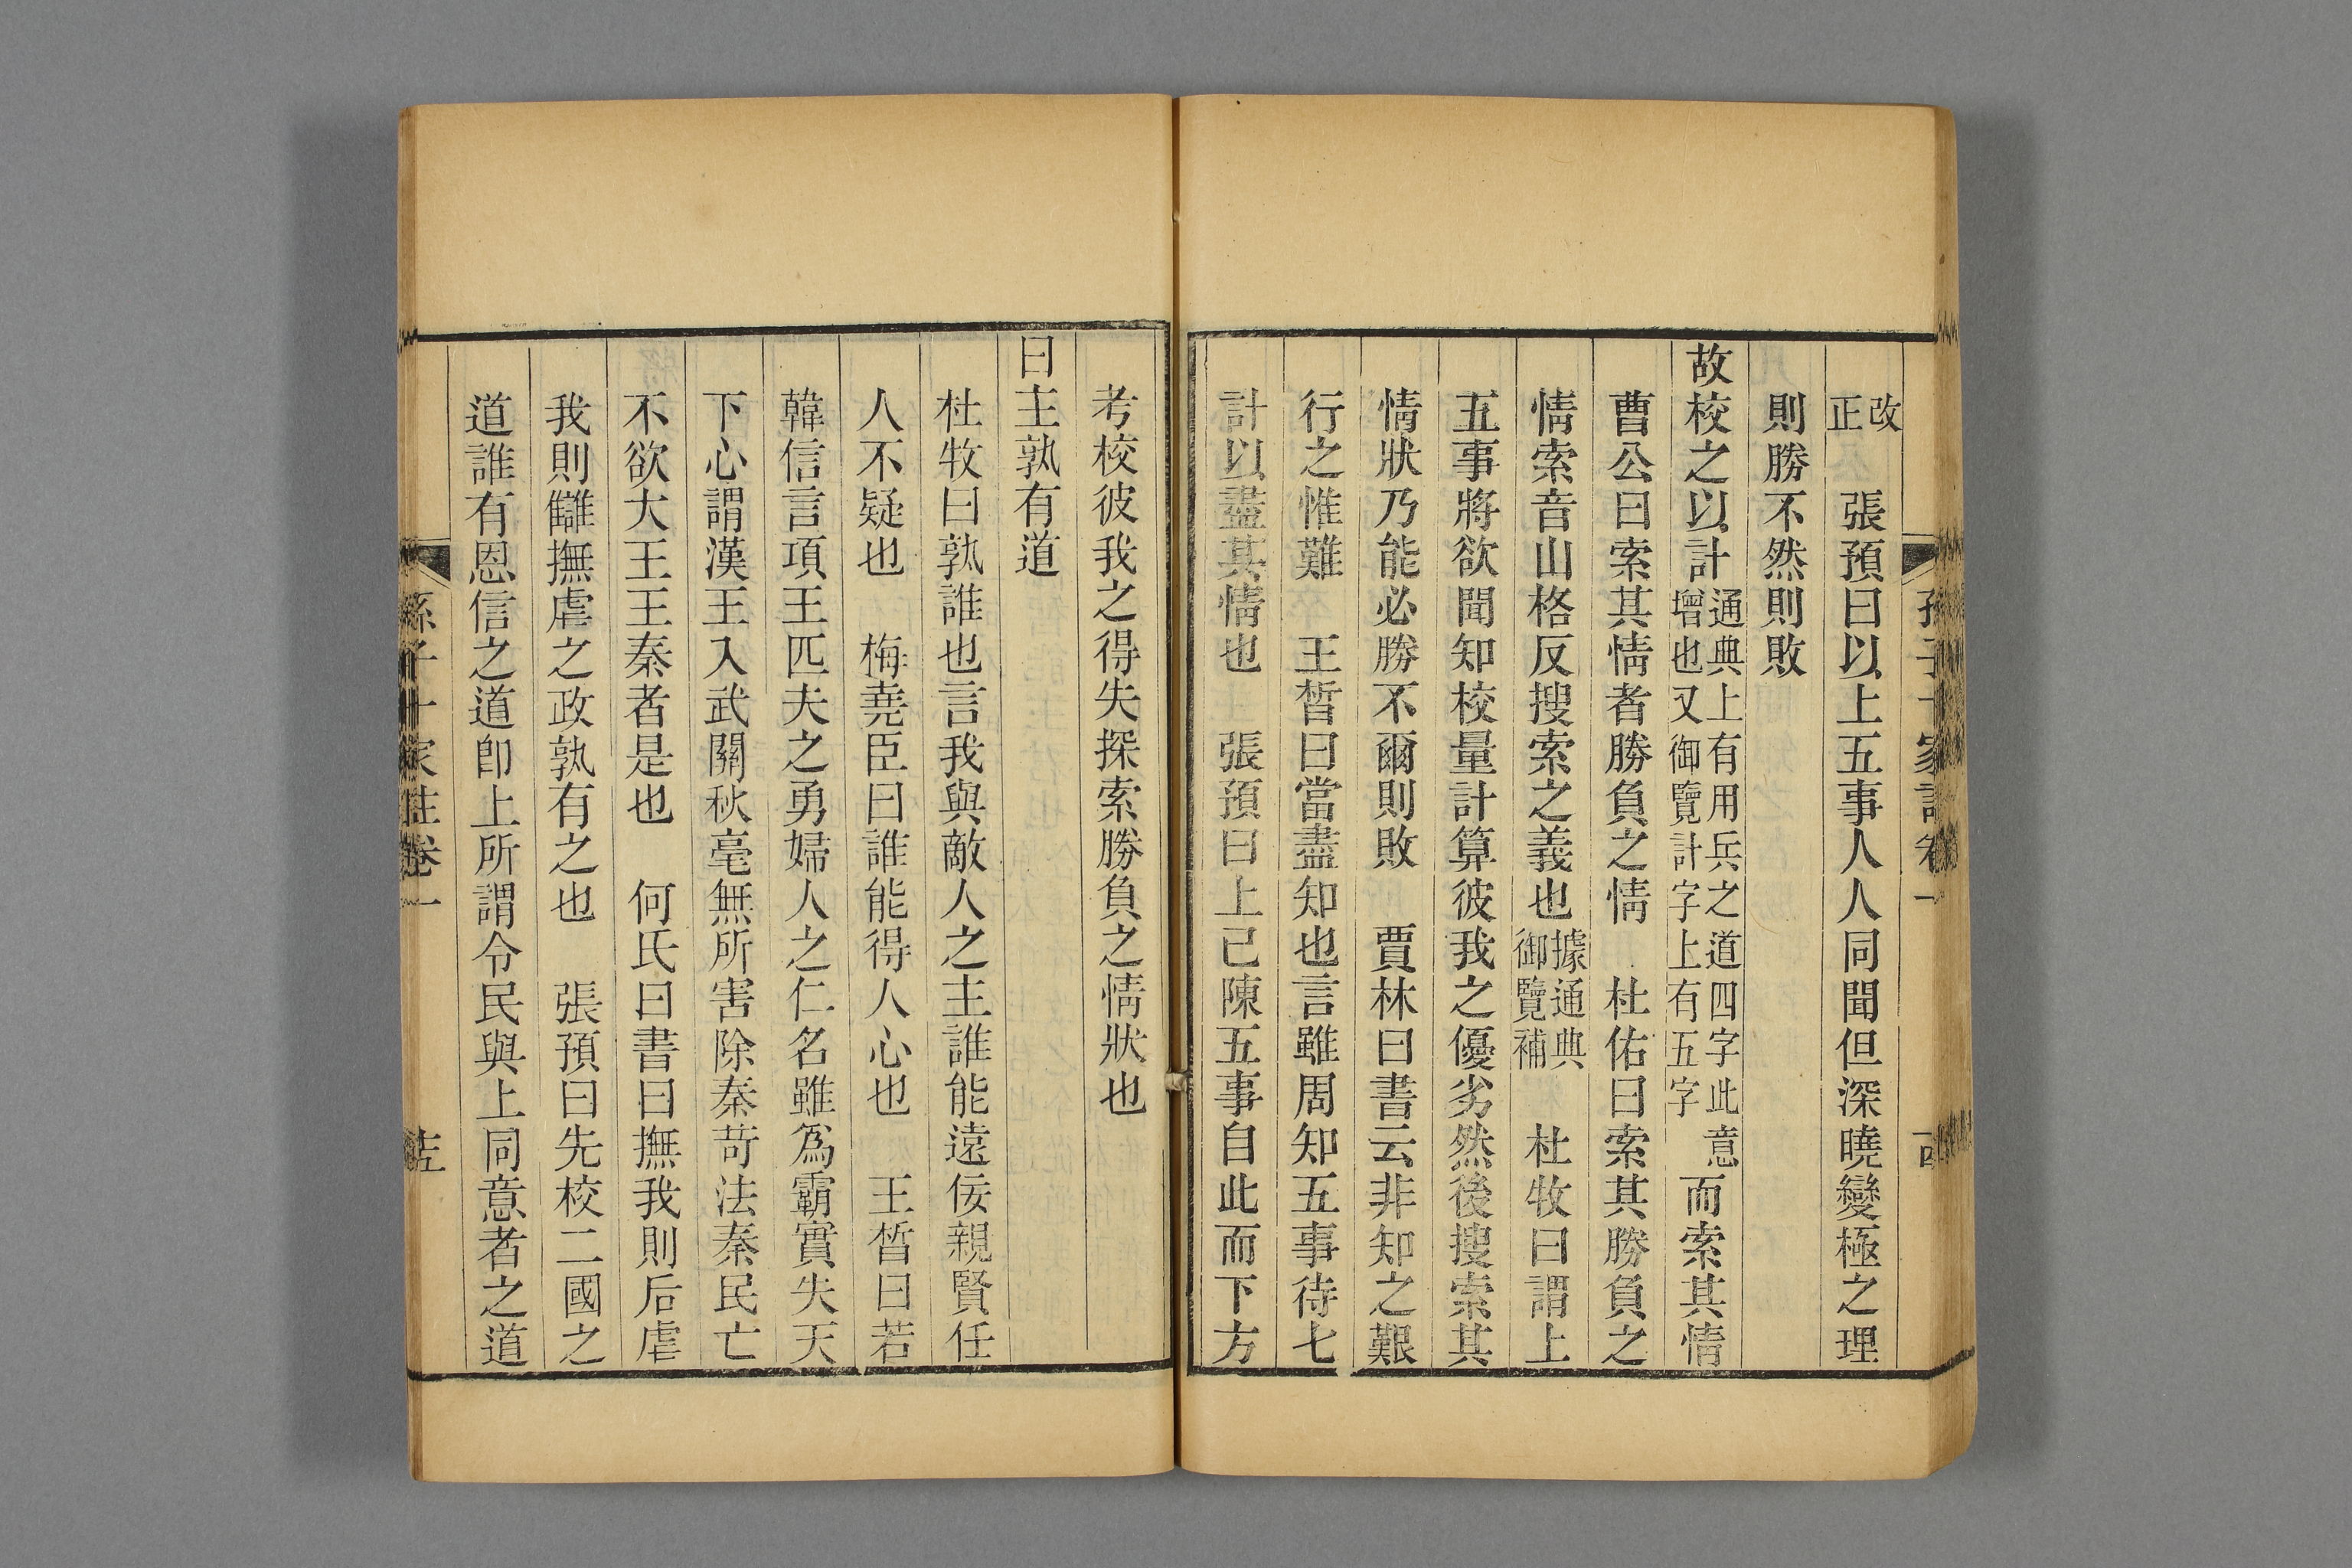 改正　張預曰以上五事人人同聞但深曉變極之理
則勝不然則敗
故校之以計通典上有用兵之道四字此意增也又御覽計字上有五字而索其情
曹公曰索其情者勝負之情　杜佑曰索其勝負之
情索音山格反搜索之義也據通典御覽補　杜牧曰謂上
五事將欲聞知校量計算彼我之優劣然後搜索其
情狀乃能必勝不爾則敗　賈林曰書云非知之艱
行之惟難　王晳曰當盡知也言雖周知五事待七
計以盡其情也　張預曰上已陳五事自此而下方
考校彼我之得失探索勝負之情狀也
曰主孰有道
杜牧曰孰誰也言我與敵人之主誰能遠佞親賢任
人不疑也　梅堯臣曰誰能得人心也　王晳曰若
韓信言項王匹夫之勇婦人之仁名雖爲霸實失天
下心謂漢王入武關秋毫無所害除秦苛法秦民亡
不欲大王王秦者是也　何氏曰書曰撫我則后虐
我則讎撫虐之政孰有之也　張預曰先校二國之
道誰有恩信之道卽上所謂令民與上同意者之道
孫子十家註卷一